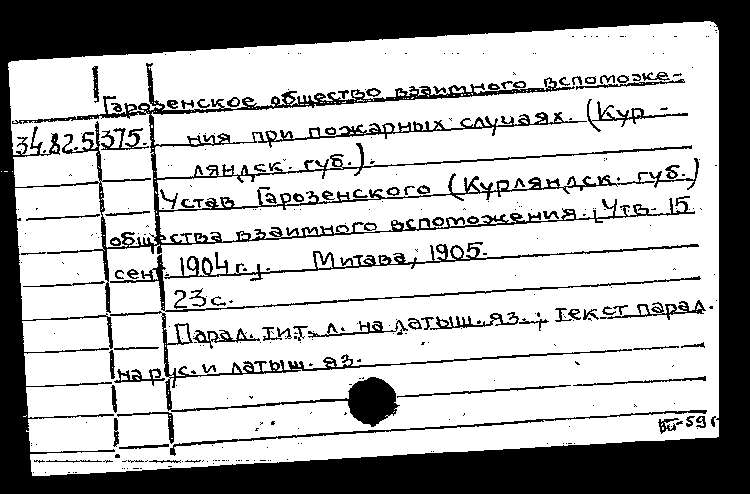 Гарозенское общество взаимного вспоможе-
34.82.5 375. ния при пожарных случаях. (Кур-
ляндск. губ.).
Устав Гарозенского (Курляндск. губ.)
общества взаимного вспоможения. [Утв. 15
сент. 1904 г.]. Митава, 1905.
23 с.
Парал. тит. л. на латыш. яз.; текст парал.
на рус. и латыш. яз.
59 г